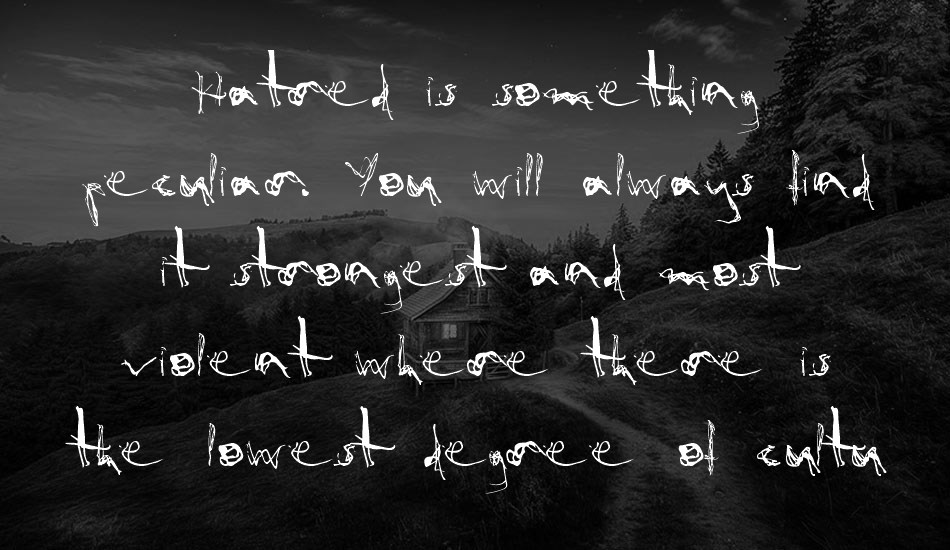 Hatred is something
peculiar. You will always find
it strongest and most
violent where there is
the lowest degree of cultu